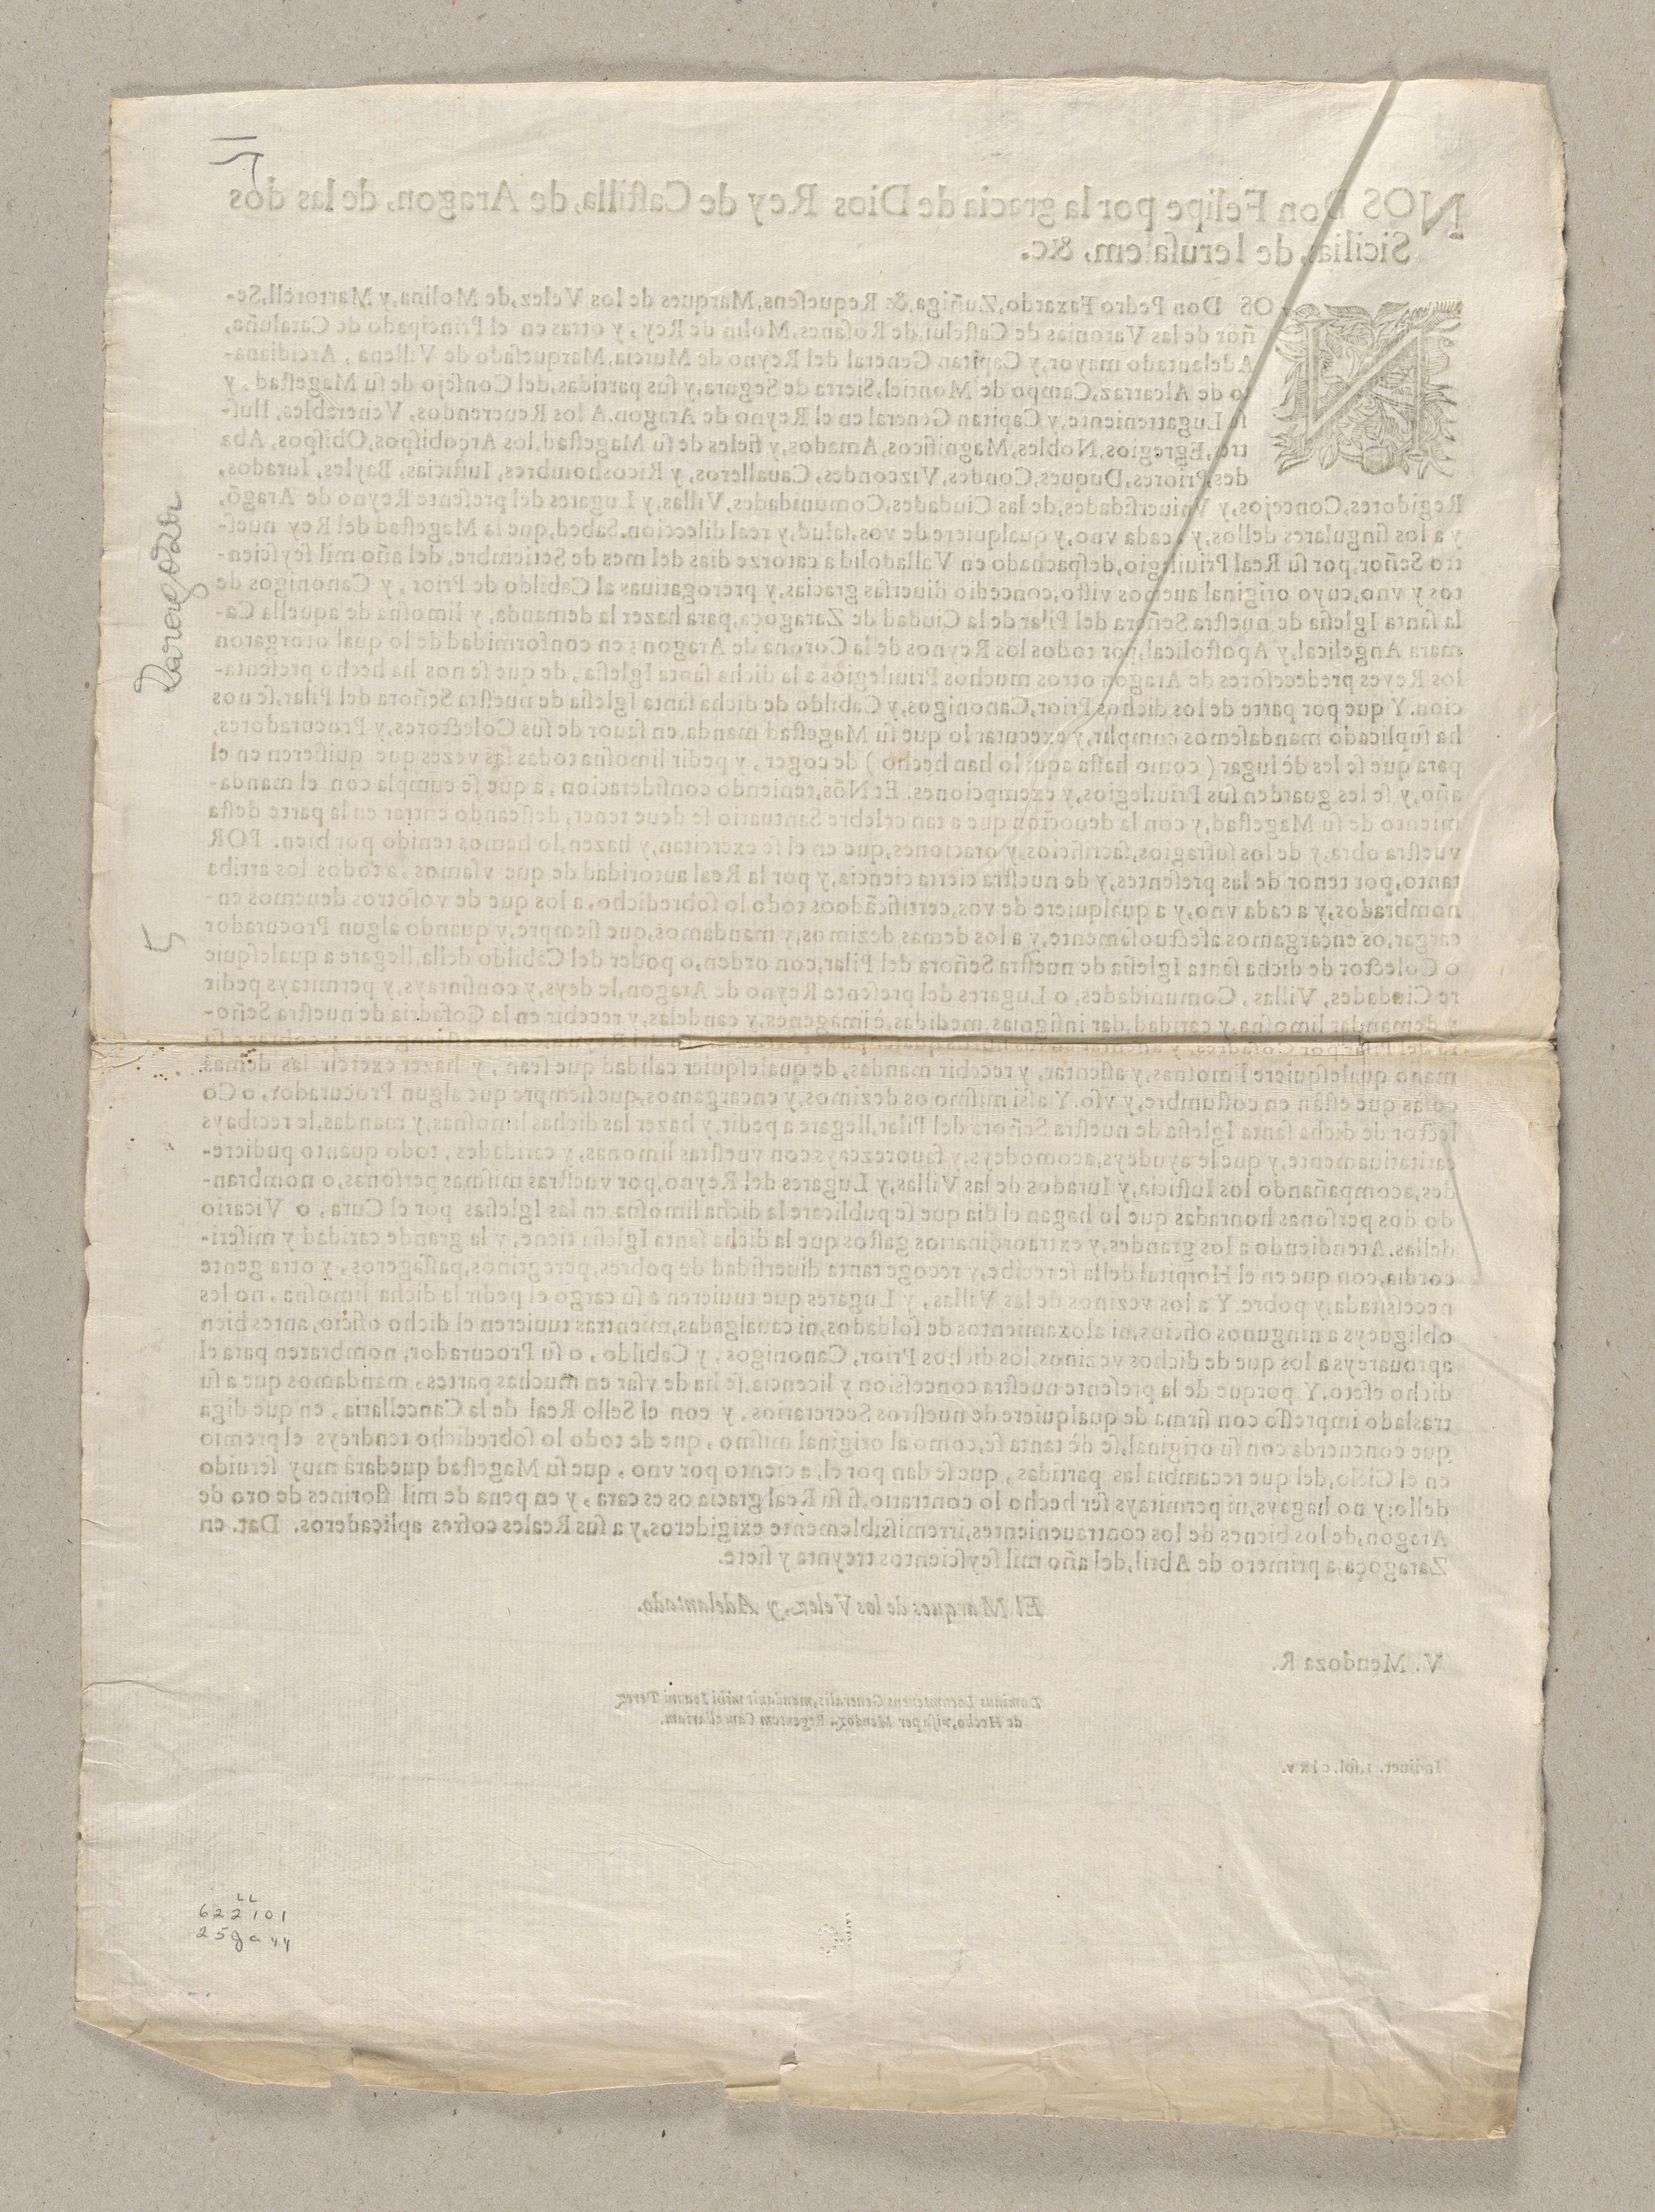 NOS Don Felipe por la gracia de Dios Rey de Caſtilla, de Aragon, de las dos
Sicilias, de Ieruſalem, &c.
NOS Don Pedro Faxardo, Zuñiga, & Requeſens, Marques de los Velez, de Molina, y Martorell, Se-
ñor de las Varonias de Caſtelui, de Roſanes, Molin de Rey, y otras en el Principado de Cataluña,
Adelantado mayor, y Capitan General del Reyno de Murcia, Marqueſado de Villena, Arcidiana-
to de Alcarraz, Campo de Montiel, Sierra de Segura, y ſus partidas, del Conſejo de ſu Mageſtad, y
ſu Lugarteniente, y Capitan General en el Reyno de Aragon. A los Reuerendos, Venerables, Iluſ-
tres, Egregios, Nobles, Magnificos, Amados, y fieles de ſu Mageſtad, los Arçobiſpos, Obiſpos, Aba
des, Priores, Duques, Condes, Vizcondes, Caualleros, y Ricoshombres, Iuſticias, Bayles, Iurados,
Regidores, Concejos, y Vniuerſidades, de las Ciudades, Comunidades, Villas, y Lugares del preſente Reyno de Aragõ,
y a los ſingulares dellos, y a cada vno, y qualquiere de vos, ſalud, y real dileccion. Sabed, que la Mageſtad del Rey nueſ-
tro Señor, por ſu Real Priuilegio, deſpachado en Valladolid a catorze dias del mes de Setiembre, del año mil ſeyſcien-
tos y vno, cuyo original auemos viſto, concedio diuerſas gracias, y prerogatiuas al Cabildo de Prior, y Canonigos de
la ſanta Igleſia de nueſtra Señora del Pilar de la Ciudad de Zaragoça, para hazer la demanda, y limoſna de aquella Ca-
mara Angelical, y Apoſtolical, por todos los Reynos de la Corona de Aragon; en conformidad de lo qual otorgaron
los Reyes predeceſores de Aragon otros muchos Priuilegios a la dicha ſanta Igleſia, de que ſe nos ha hecho preſenta-
cion. Y que por parte de los dichos Prior, Canonigos, y Cabildo de dicha ſanta Igleſia de nueſtra Señora del Pilar, ſe nos
ha ſuplicado mandaſemos cumplir, y executar lo que ſu Mageſtad manda, en fauor de ſus Colectores, y Procuradores,
para que ſe les dè lugar (como haſta aqui lo han hecho) de coger, y pedir limoſna todas las vezes que quiſieren en el
año, y ſe les guarden ſus Priuilegios, y exempciones. Et Nòs, teniendo conſideracion, a que ſe cumpla con el manda-
miento de ſu Mageſtad, y con la deuocion que a tan celebre Santuario ſe deue tener, deſſeando entrar en la parte deſta
vueſtra obra, y de los ſufragios, ſacrificios, y oraciones, que en el ſe exercitan, y hazen, lo hemos tenido por bien. POR
tanto, por tenor de las preſentes, y de nueſtra cierta ciencia, y por la Real autoridad de que vſamos, a todos los arriba
nombrados, y a cada vno, y a qualquiere de vos, certificãdoos todo lo ſobredicho, a los que de voſotros deuemos en-
cargar, os encargamos afectuoſamente, y a los demas dezimos, y mandamos, que ſiempre, y quando algun Procurador
o Colector de dicha ſanta Igleſia de nueſtra Señora del Pilar, con orden, o poder del Cabildo della, llegare a qualeſquie
re Ciudades, Villas, Comunidades, o Lugares del preſente Reyno de Aragon, le deys, y conſintays, y permitays pedir
y demandar limoſna, y caridad, dar inſignias, medidas, è imagenes, y candelas, y recebir en la Cofadria de nueſtra Seño-
ra del Pilar por Cofadres, y
mano qualeſquiere limoſnas, y aſſentar, y recebir mandas, de qualeſquier calidad que ſean, y hazer exercir las demas
coſas que eſtàn en coſtumbre, y vſo. Y aſsi miſmo os dezimos, y encargamos, que ſiempre que algun Procurador, o Co
lector de dicha ſanta Igleſia de nueſtra Señora del Pilar, llegare a pedir, y hazer las dichas limoſnas, y mandas, le recibays
caritatiuamente, y que le ayudeys, acomodeys, y fauorezcays con vueſtras limonas, y caridades, todo quanto pudiere-
des, acompañando los Iuſticia, y Iurados de las Villas, y Lugares del Reyno, por vueſtras miſmas perſonas, o nombran-
do dos perſonas honradas que lo hagan el dia que ſe publicare la dicha limoſna en las Igleſias por el Cura, o Vicario
dellas. Atendiendo a los grandes, y extraordinarios gaſtos que la dicha ſanta Igleſia tiene, y la grande caridad y miſeri-
cordia, con que en el Hoſpital della ſe recibe, y recoge tanta diuerſidad de pobres, peregrinos, paſſageros, y otra gente
neceſsitada, y pobre. Y a los vezinos de las Villas, y Lugares que tuuieren a ſu cargo el pedir la dicha limoſna, no les
obligueys a ningunos oficios, ni aloxamientos de ſoldados, ni caualgadas, mientras tuuieren el dicho oficio, antes bien
aprouareys a los que de dichos vezinos, los dichos Prior, Canonigos, y Cabildo, o ſu Procurador, nombraren para el
dicho efeto. Y porque de la preſente nueſtra conceſsion y licencia, ſe ha de vſar en muchas partes, mandamos que a ſu
traslado impreſſo con firma de qualquiere de nueſtros Secretarios, y con el Sello Real de la Cancellaria, en que diga
que concuerda con ſu original, ſe dè tanta fè, como al original miſmo, que de todo lo ſobredicho tendreys el premio
en el Cielo, del que recambia las partidas, que ſe dan por el, a ciento por vno, que ſu Mageſtad quedarà muy ſeruido
dello; y no hagays, ni permitays ſer hecho lo contrario, ſi ſu Real gracia os es cara, y en pena de mil florines de oro de
Aragon, de los bienes de los contrauenientes, irremiſsiblemente exigideros, y a ſus Reales cofres aplicaderos. Dat. en
Zaragoça, a primero de Abril, del año mil ſeyſcientos treynta y ſiete.
El Marques de los Velez, y Adelantado.
V. Mendoza R.
Dominus Locumtenens Generalis, mandauit mihi Ioanni Perez
de Hecho, viſa per Mendoz. Regentem Cancellariam.
5
LL
622101
25ga44